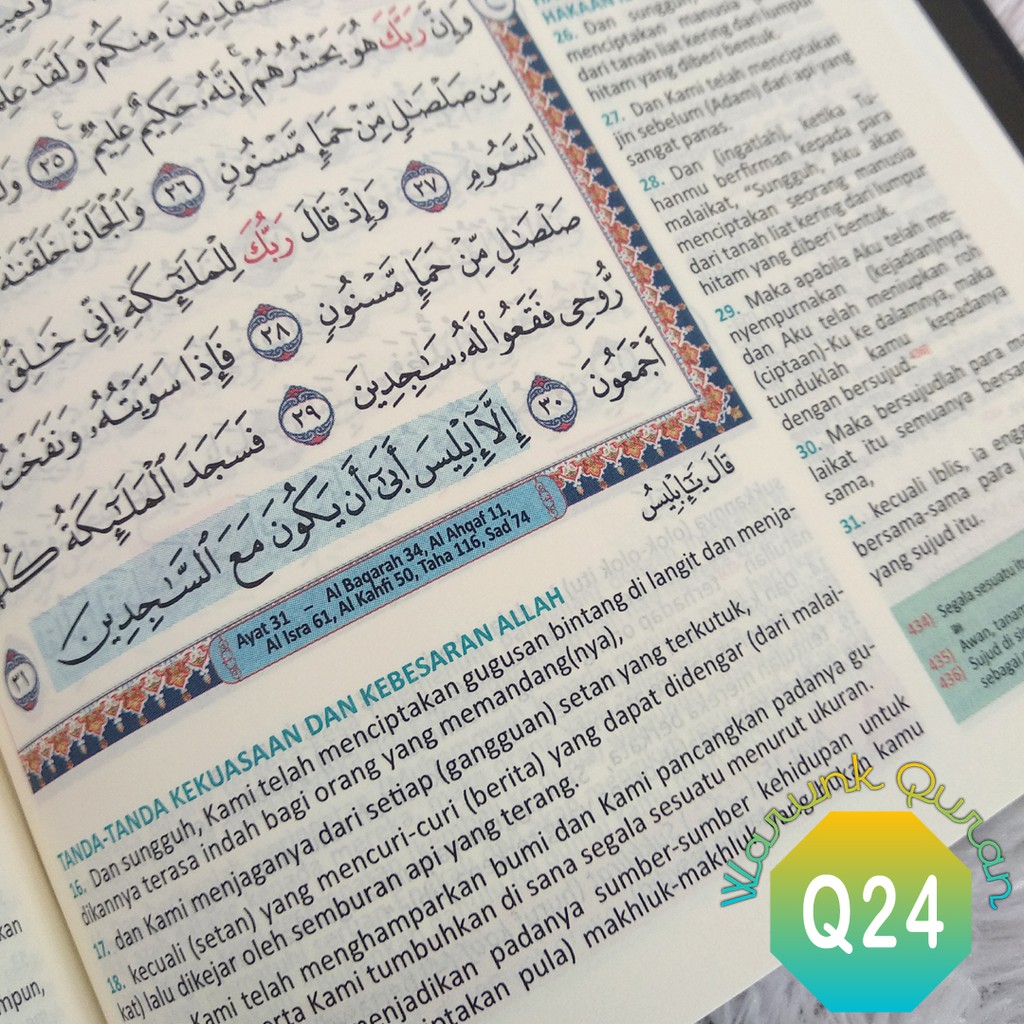 وَإِنَّ رَبَّكَ هُوَ يَحْشُرُهُمْ إِنَّهُ حَكِيمٌ عَلِيمٌ ٢٥
مِن صَلْصَٰلٍ مِّنْ حَمَإٍ مَّسْنُونٍ ٢٦ وَالْجَانَّ خَلَقْنَٰهُ
السَّمُومِ ٢٧ وَإِذْ قَالَ رَبُّكَ لِلْمَلَٰٓئِكَةِ إِنِّي خَٰلِقٌ
صَلْصَٰلٍ مِّنْ حَمَإٍ مَّسْنُونٍ ٢٨ فَإِذَا سَوَّيْتُهُ وَنَفَخْتُ
رُّوحِي فَقَعُوا لَهُ سَٰجِدِينَ ٢٩ فَسَجَدَ الْمَلَٰٓئِكَةُ
أَجْمَعُونَ ٣٠ إِلَّا إِبْلِيسَ أَبَىٰٓ أَن يَكُونَ مَعَ السَّٰجِدِينَ ٣١
قَالَ يَٰٓإِبْلِيسُ
Ayat 31 – Al Baqarah 34, Al Ahqaf 11,
Al Isra 61, Al Kahfi 50, Taha 116, Sad 74
TANDA-TANDA KEKUASAAN DAN KEBESARAN ALLAH
16. Dan sungguh, Kami telah menciptakan gugusan bintang di langit dan menja-
dikannya terasa indah bagi orang yang memandang(nya),
17. dan Kami menjaganya dari setiap (gangguan) setan yang terkutuk,
18. kecuali (setan) yang mencuri-curi (berita) yang dapat didengar (dari malai-
kat) lalu dikejar oleh semburan api yang terang.
Kami telah menghamparkan bumi dan Kami pancangkan padanya gu-
erta Kami tumbuhkan di sana segala sesuatu menurut ukuran.
menjadikan padanya sumber-sumber kehidupan untuk kamu
ciptakan pula) makhluk-makhluk
26. Dan sungguh,
menciptakan manusia
dari tanah liat kering dari lumpur
hitam yang diberi bentuk.
27. Dan Kami telah menciptakan
jin sebelum (Adam) dari api yang
sangat panas.
28. Dan (ingatlah), ketika Tu-
hanmu berfirman kepada para
malaikat, "Sungguh, Aku akan
menciptakan seorang manusia
dari tanah liat kering dari lumpur
hitam yang diberi bentuk.
29. Maka apabila Aku telah me-
nyempurnakan (kejadian)nya,
dan Aku telah meniupkan roh
(ciptaan)-Ku ke dalamnya, maka
tunduklah kamu kepadanya
dengan bersujud. 436)
30. Maka bersujudlah para ma
laikat itu semuanya bersam
sama,
31. kecuali Iblis, ia engg
bersama-sama para (
yang sujud itu.
434) Segala sesuatu it
435) Awan, tanam
436) Sujud di si
sebagai
Warunk Quran
Q24